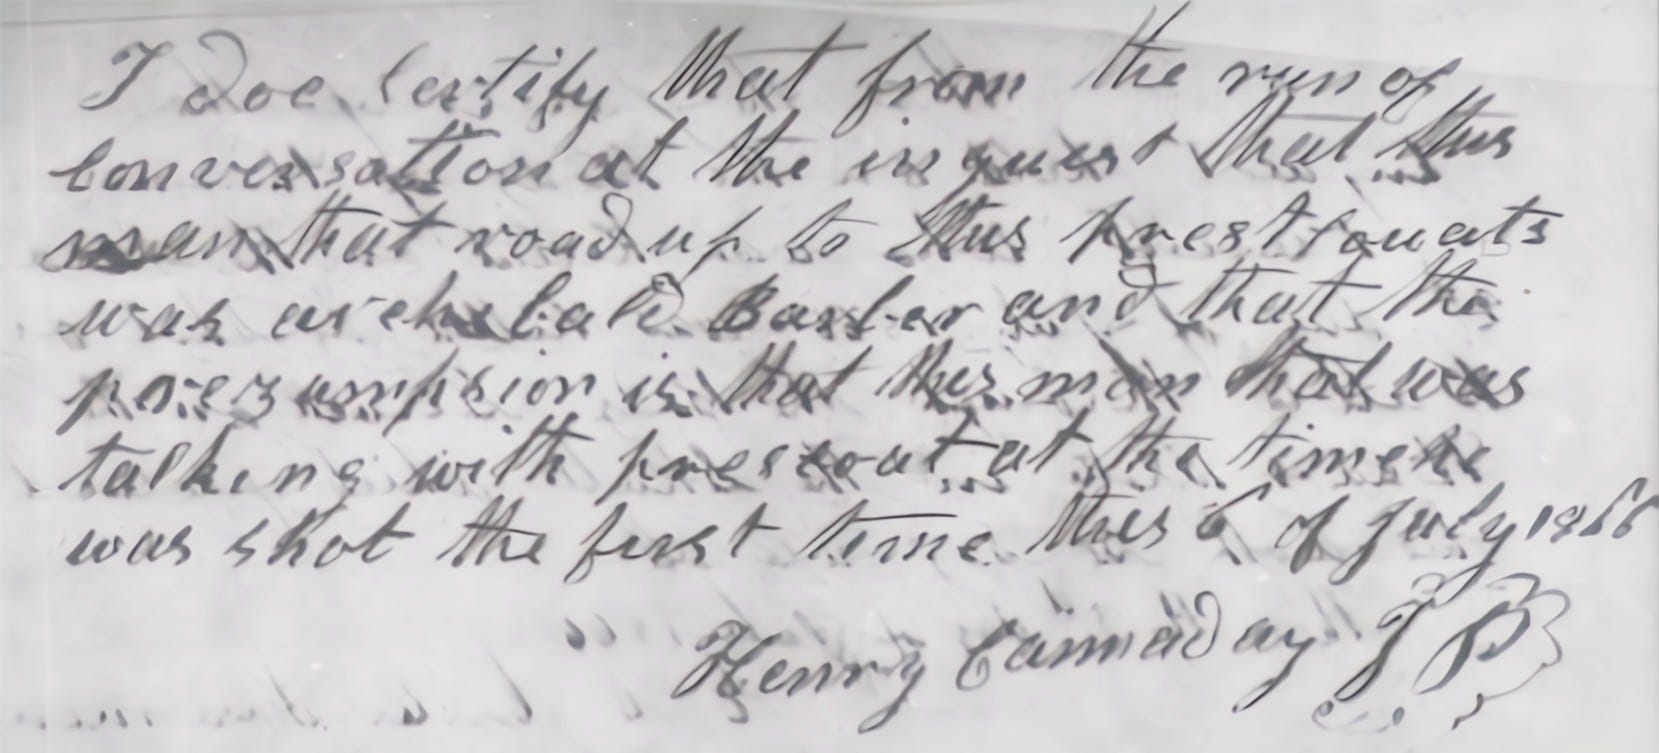 I Doe Certify that from the run of
Conversation at the inquest that this
man that road up to this prestfouats
was archebald Barber and that the
prezumpsion is that this man that was
talking with prescout at the time he
was shot the first time this 6 of July 1866
Henry Cannaday J P